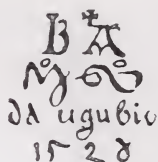 B A
Mº
da ugubio
1528